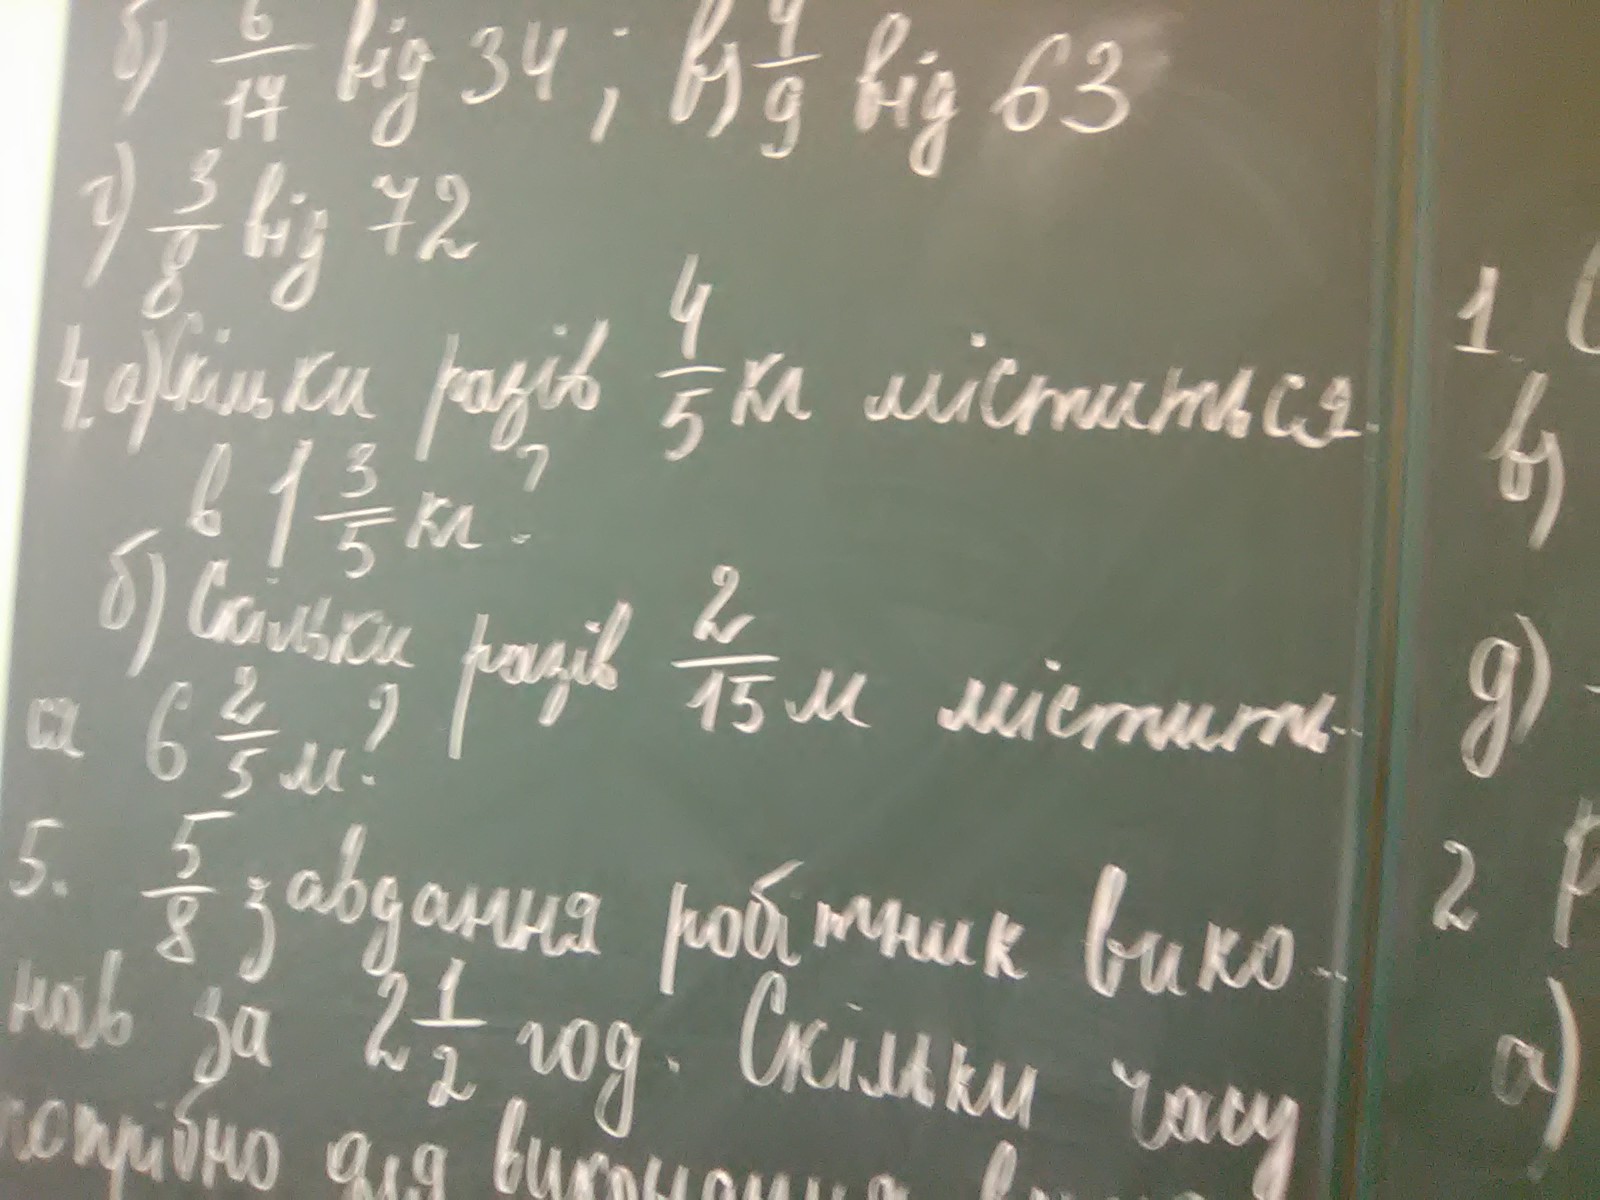 б) 6/17 від 34; в) 4/9 від 63
г) 3/8 від 72
4. а) Скільки разів 4/5 км міститься
в 1 3/5 км?
б) Скільки разів 2/15 м містить-
ся 6 2/5 м?
5. 5/8 завдання робітник вико-
нав за 2 1/2 год. Скільки часу
потрібно для виконання
1.
в)
д)
2 Р
а)